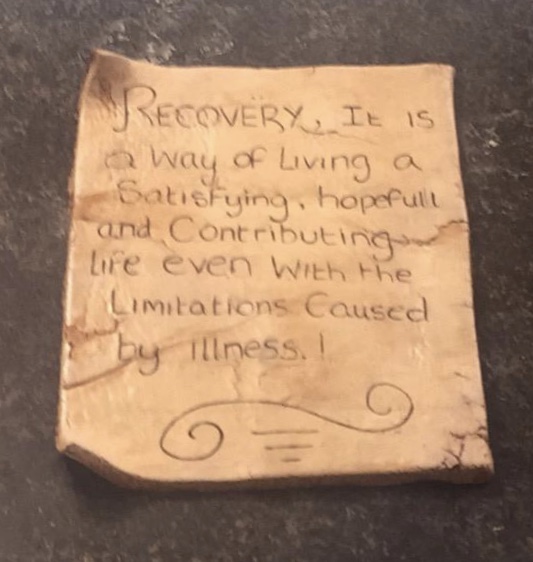 RECOVERY, It is
a Way of Living a
Satisfying, hopefull
and Contributing
life even With the
Limitations Caused
by illness. !